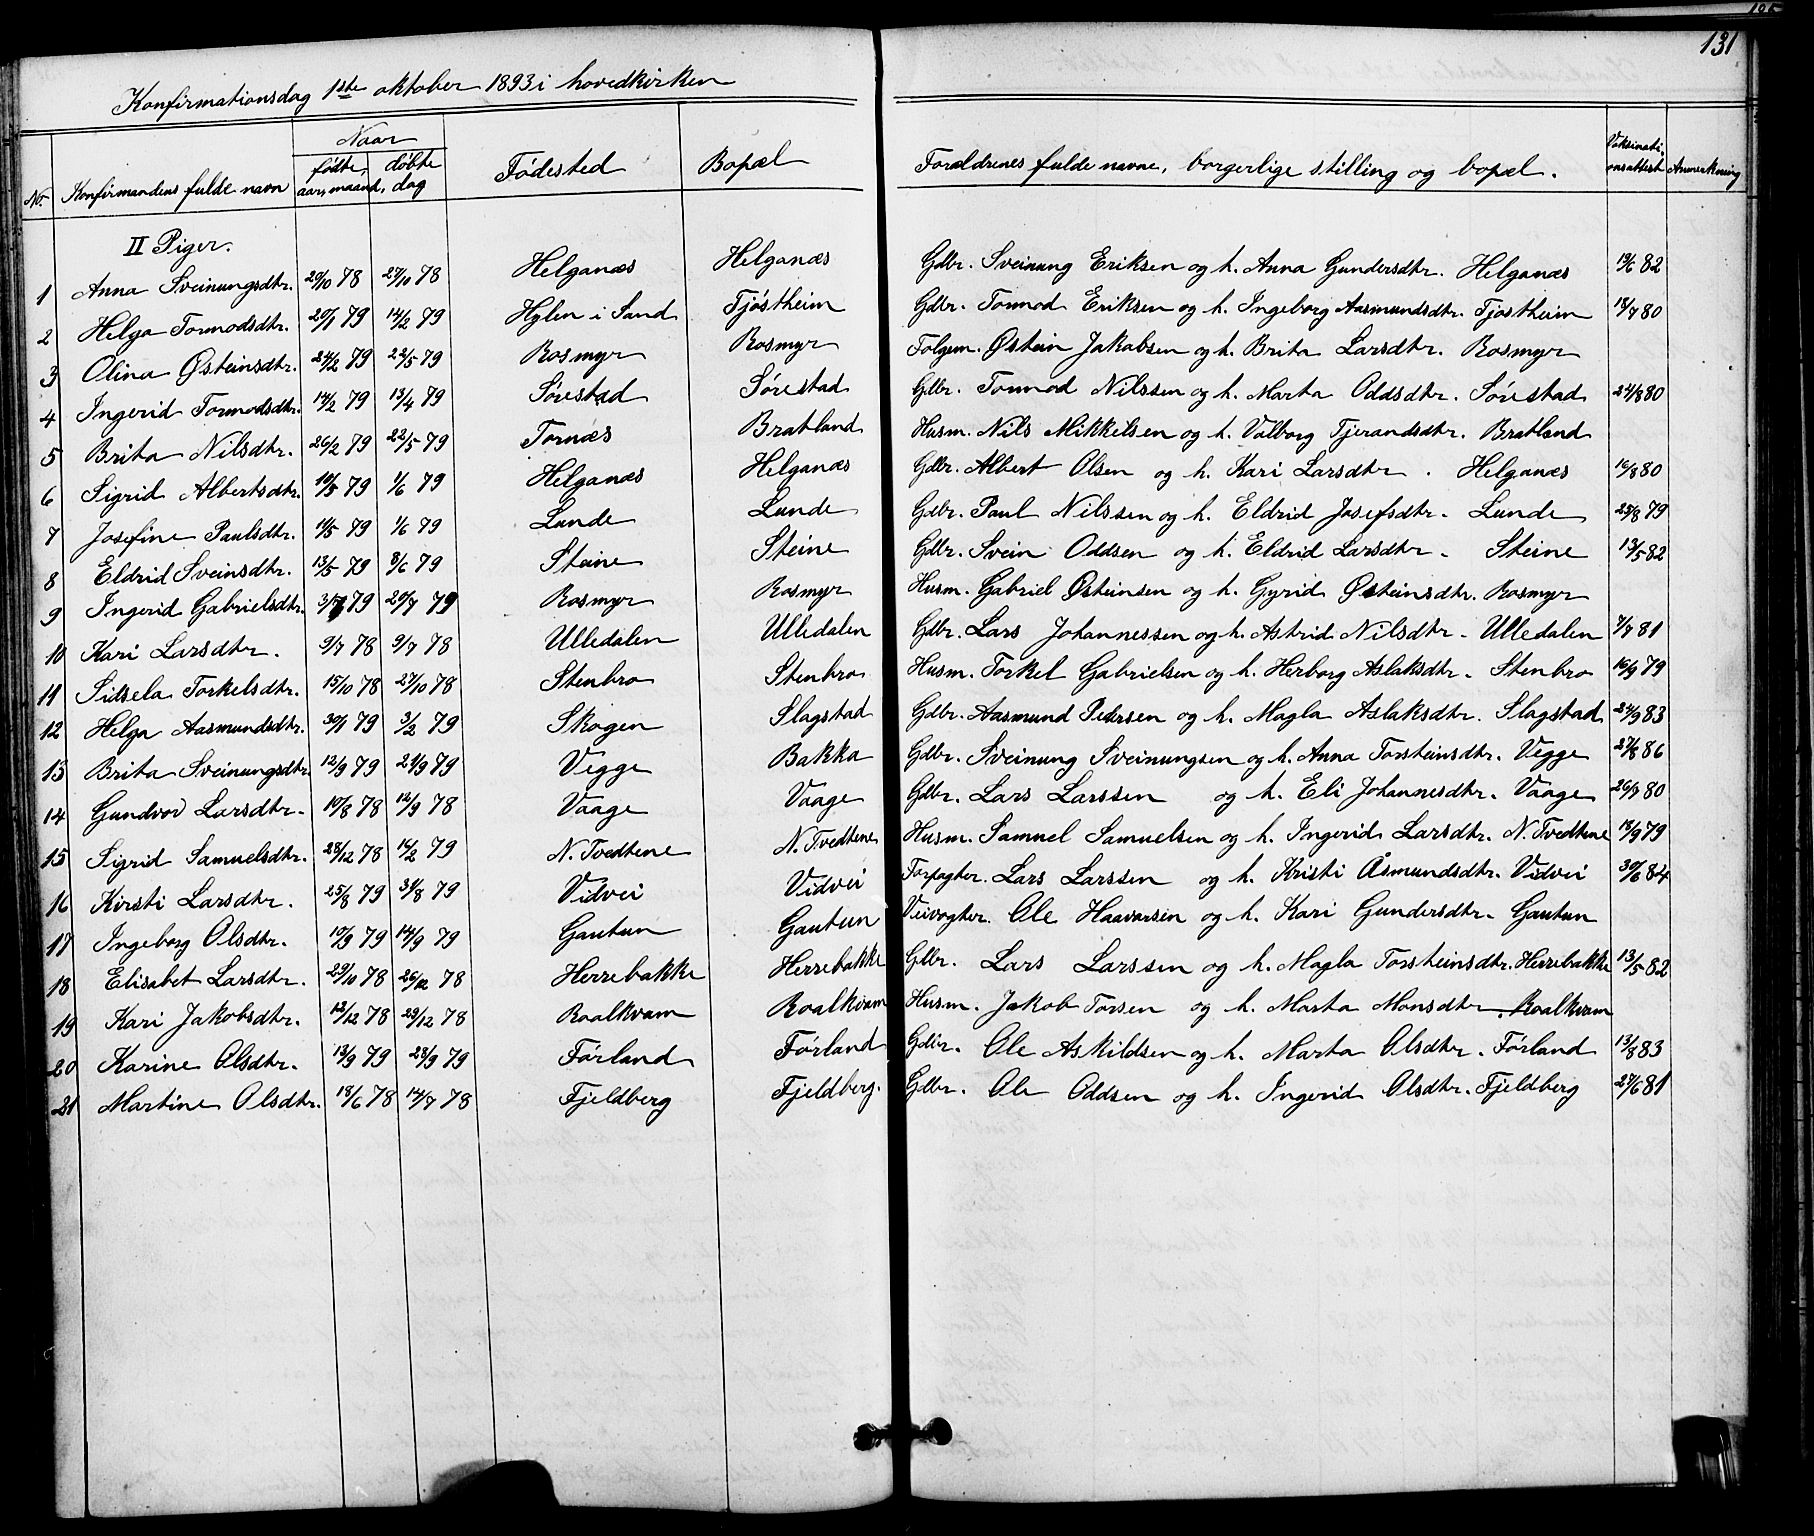 131
Konfirmationsdag 1ste oktober 1893 i hovedkirken
No. Konfirmandens fulde navn Naar fødte, døbte aar, maaned, dag Fødested Bopæl Forældrenes fulde navne, borgerlige stilling og bopæl. Vaksinationsattest Anmerkning
II Piger.
1 Anna Sveinungsdtr. 20/10 78 27/10 78 Helganæs Helganæs Gdbr. Sveinung Eriksen og h. Anna Gundersdtr. Helganæs 82
2 Helga Tormodsdtr. 20/1 79 14/2 79 Hylen i Sand Tjøstheim Gdbr. Tormod Eriksen og h. Ingeborg Aasmundsdtr. Tjøstheim 18/7 80
3 Olina Østeinsdtr. 24/2 79 22/5 79 Rosmyr Rosmyr Folgem. Østein Jakobsen og h. Brita Larsdtr. Rosmyr
4 Ingerid Tormodsdtr. 14/2 79 13/4 79 Sørestad Sørestad Gdbr. Tormod Nilssen og h. Marta Oddsdtr. Sørestad 24/8 80
5 Brita Nilsdtr. 26/2 79 22/5 79 Tornæs Bratland Husm. Nils Mikkelsen og h. Valborg Tjerandsdtr. Bratland
6 Sigrid Albertsdtr. 79 1/6 79 Helganæs Helganæs Gdbr. Albert Olsen og h. Kari Larsdtr. Helganæs 16/8 80
7 Josefine Paulsdtr. 11/5 79 1/6 79 Lunde Lunde Gdbr. Paul Nilssen og h. Eldrid Josefsdtr. Lunde 25/8 79
8 Eldrid Sveinsdtr. 13/5 79 8/6 79 Steine Steine Gdbr. Svein Oddsen og h. Eldrid Larsdtr. Steine 13/5 82
9 Ingerid Gabrielsdtr. 3/7 79 20/7 79 Rosmyr Rosmyr Husm. Gabriel Østeinsen og h. Gyrid Østeinsdtr. Rosmyr
10 Kari Larsdtr. 9/7 78 9/7 78 Ulledalen Ulledalen Gdbr. Lars Johannessen og h. Astrid Nilsdtr. Ulledalen 7/7 81
11 Sidsela Torkelsdtr. 15/10 78 27/10 78 Stenbro Stenbro Husm. Torkel Gabrielsen og h. Herborg Aslaksdtr. Stenbro 16/9 79
12 Helga Aasmundsdtr. 30/1 79 3/2 79 Skogen Slagstad Gdbr. Aasmund Pedersen og h. Magla Aslaksdtr. Slagstad 24/9 83
13 Brita Sveinungsdtr. 12/9 79 21/9 79 Vegge Bakka Gdbr. Sveinung Sveinungsen og h. Anna Torsteinsdtr. Vegge 86
14 Gundvor Larsdtr. 19/8 78 12/9 78 Vaage Vaage Gdbr. Lars Larssen og h. Eli Johannesdtr. Vaage 80
15 Sigrid Samuelsdtr. 28/12 78 79 N. Tvedtene N. Tvedtene Husm. Samuel Samuelsen og h. Ingerid Larsdtr. N. Tvedtene 15/9 79
16 Kirsti Larsdtr. 25/8 79 31/8 79 Vidvei Vidvei Forpagter. Lars Larssen og h. Kristi Åsmundsdtr. Vidvei 30/6 84
17 Ingeborg Olsdtr. 10/9 79 14/9 79 Gautun Gautun Veivogter. Ole Haavarsen og h. Kari Gundersdtr. Gautun
18 Elisabet Larsdtr. 29/10 78 26/12 78 Herrebakke Herrebakke Gdbr. Lars Larssen og h. Magla Torsteinsdtr. Herrebakke 13/5 82
19 Kari Jakobsdtr. 12/12 78 29/12 78 Roalkvam Roalkvam Husm. Jakob Torsen og h. Marta Monsdtr. Roalkvam
20 Karine Olsdtr. 13/9 79 28/9 79 Førland Førland Gdbr. Ole Askildsen og h. Marta Olsdtr. Førland 13/8 83
21 Martine Olsdtr. 18/6 78 14/7 78 Fjeldberg Fjeldberg. Gdbr. Ole Oddsen og h. Ingerid Olsdtr. Fjeldberg 27/6 81